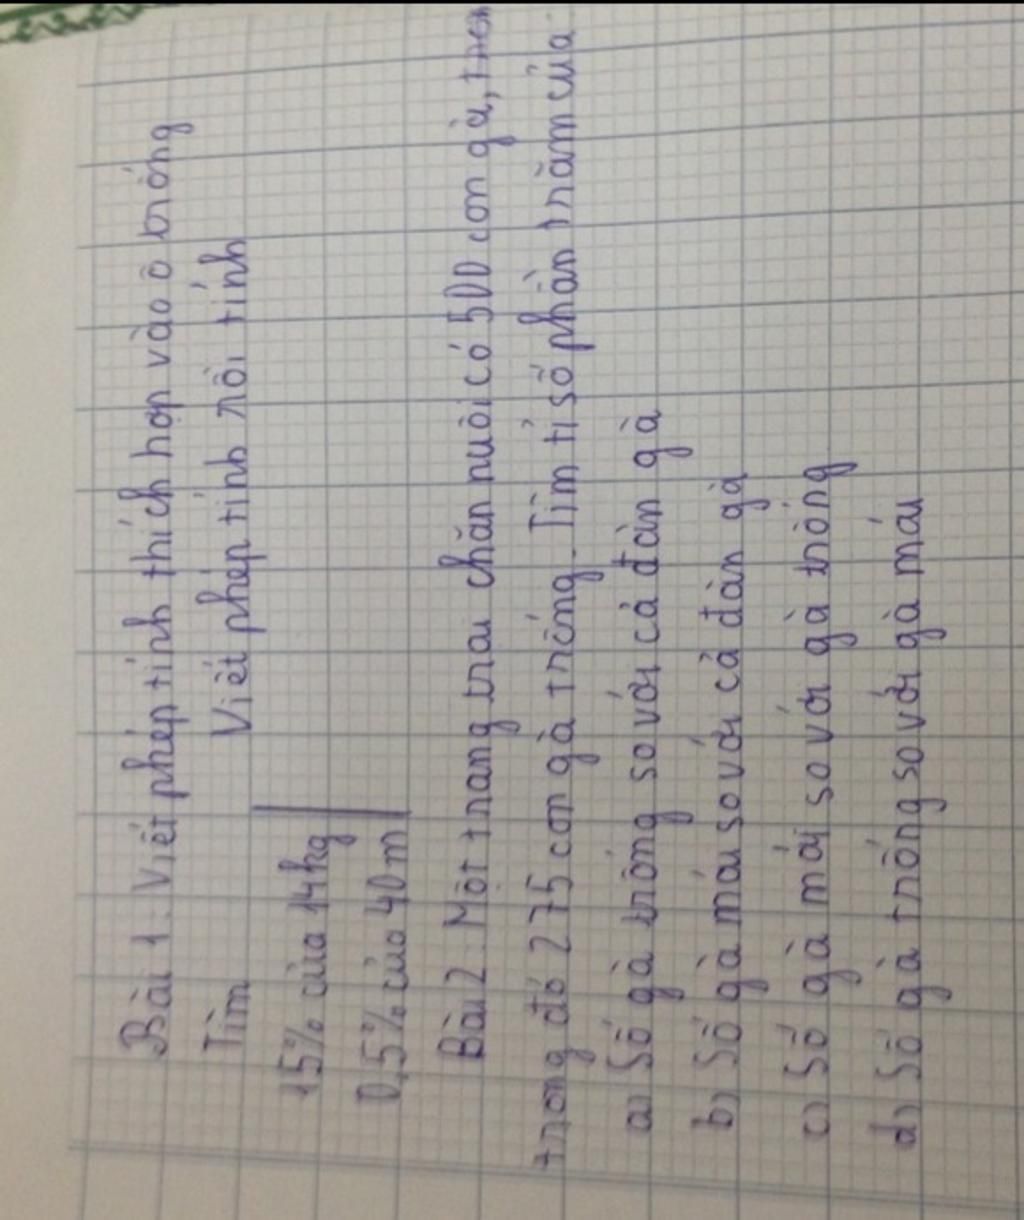 Bài 1: Viết phép tính thích hợp vào ô trống
Tìm Viết phép tính rồi tính
15% của 14kg
0,5% của 40m
Bài 2: Một trang trai chăn nuôi có 500 con gà,
trong đó 275 con gà trống. Tìm tỉ số phần trăm của
a) Số gà trống so với cả đàn gà
b) Số gà mái so với cả đàn gà
c) Số gà mái so với gà trống
d) Số gà trống so với gà mái